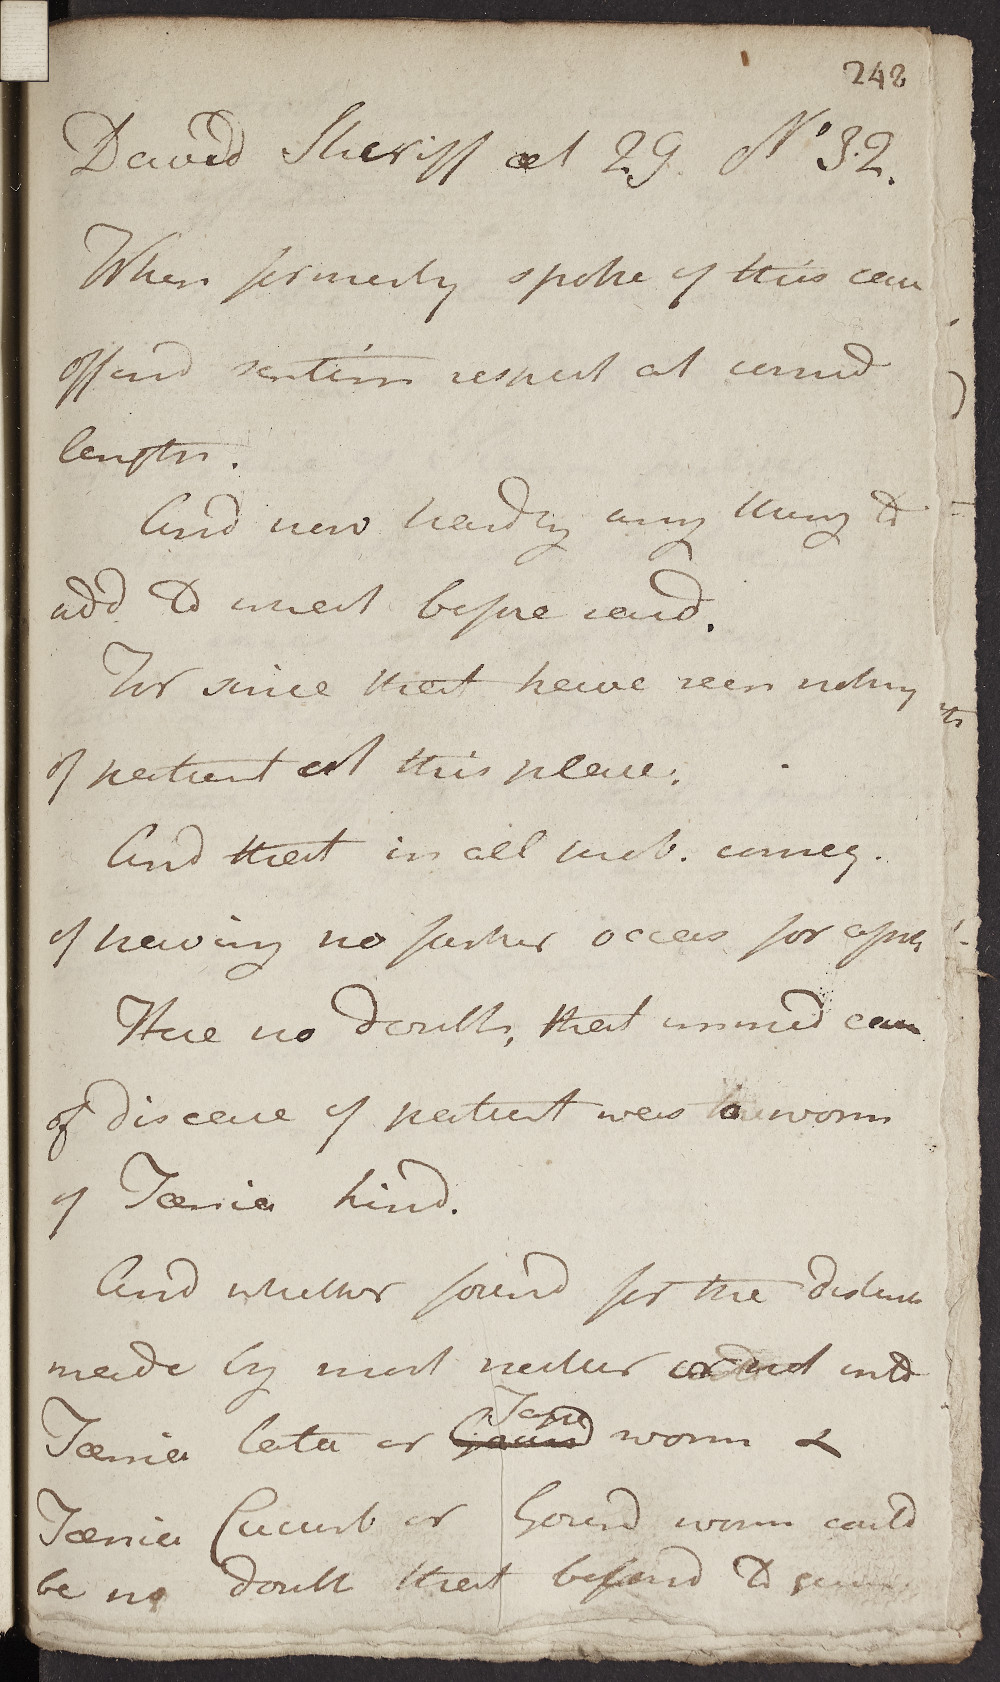 248
David Sheriff æt 29. No 32.
When formerly spoke of this case
offered sentim respect at consid
length.
And now hardly any thing to
add to what before said.
For since that have seen nothing
of patient at this place.
And that in all prob. conseq.
of having no farther occas for assist
Here no doubt, that immed cause
of disease of patient was a worm
of Tænia kind.
And whether found for the distinct
made by most or not into
Tænia lata or Tape worm &
Tænia Cucurb or Gourd worm could
be no doubt that belong'd to genus